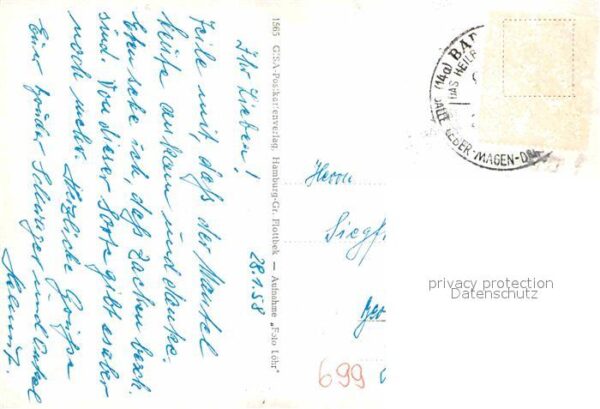 28.1.58
Ihr Lieben!
Teile mit, daß der Mantel
heute ankam und danke.
Eben sehe ich, daß Zacken besch.
sind. Von dieser Sorte gibt es aber
noch mehr. Herzliche Grüße
Euer Schwager und Onkel
Helmut.
1565 GISA-Postkartenverlag, Hamburg-Gr. Flottbek — Aufnahme „Foto Löhr"
(14a) BAD
DAS HEILB
GALLE-LEBER-MAGEN-DA
Herrn
Siegf
699
privacy protection
Datenschutz